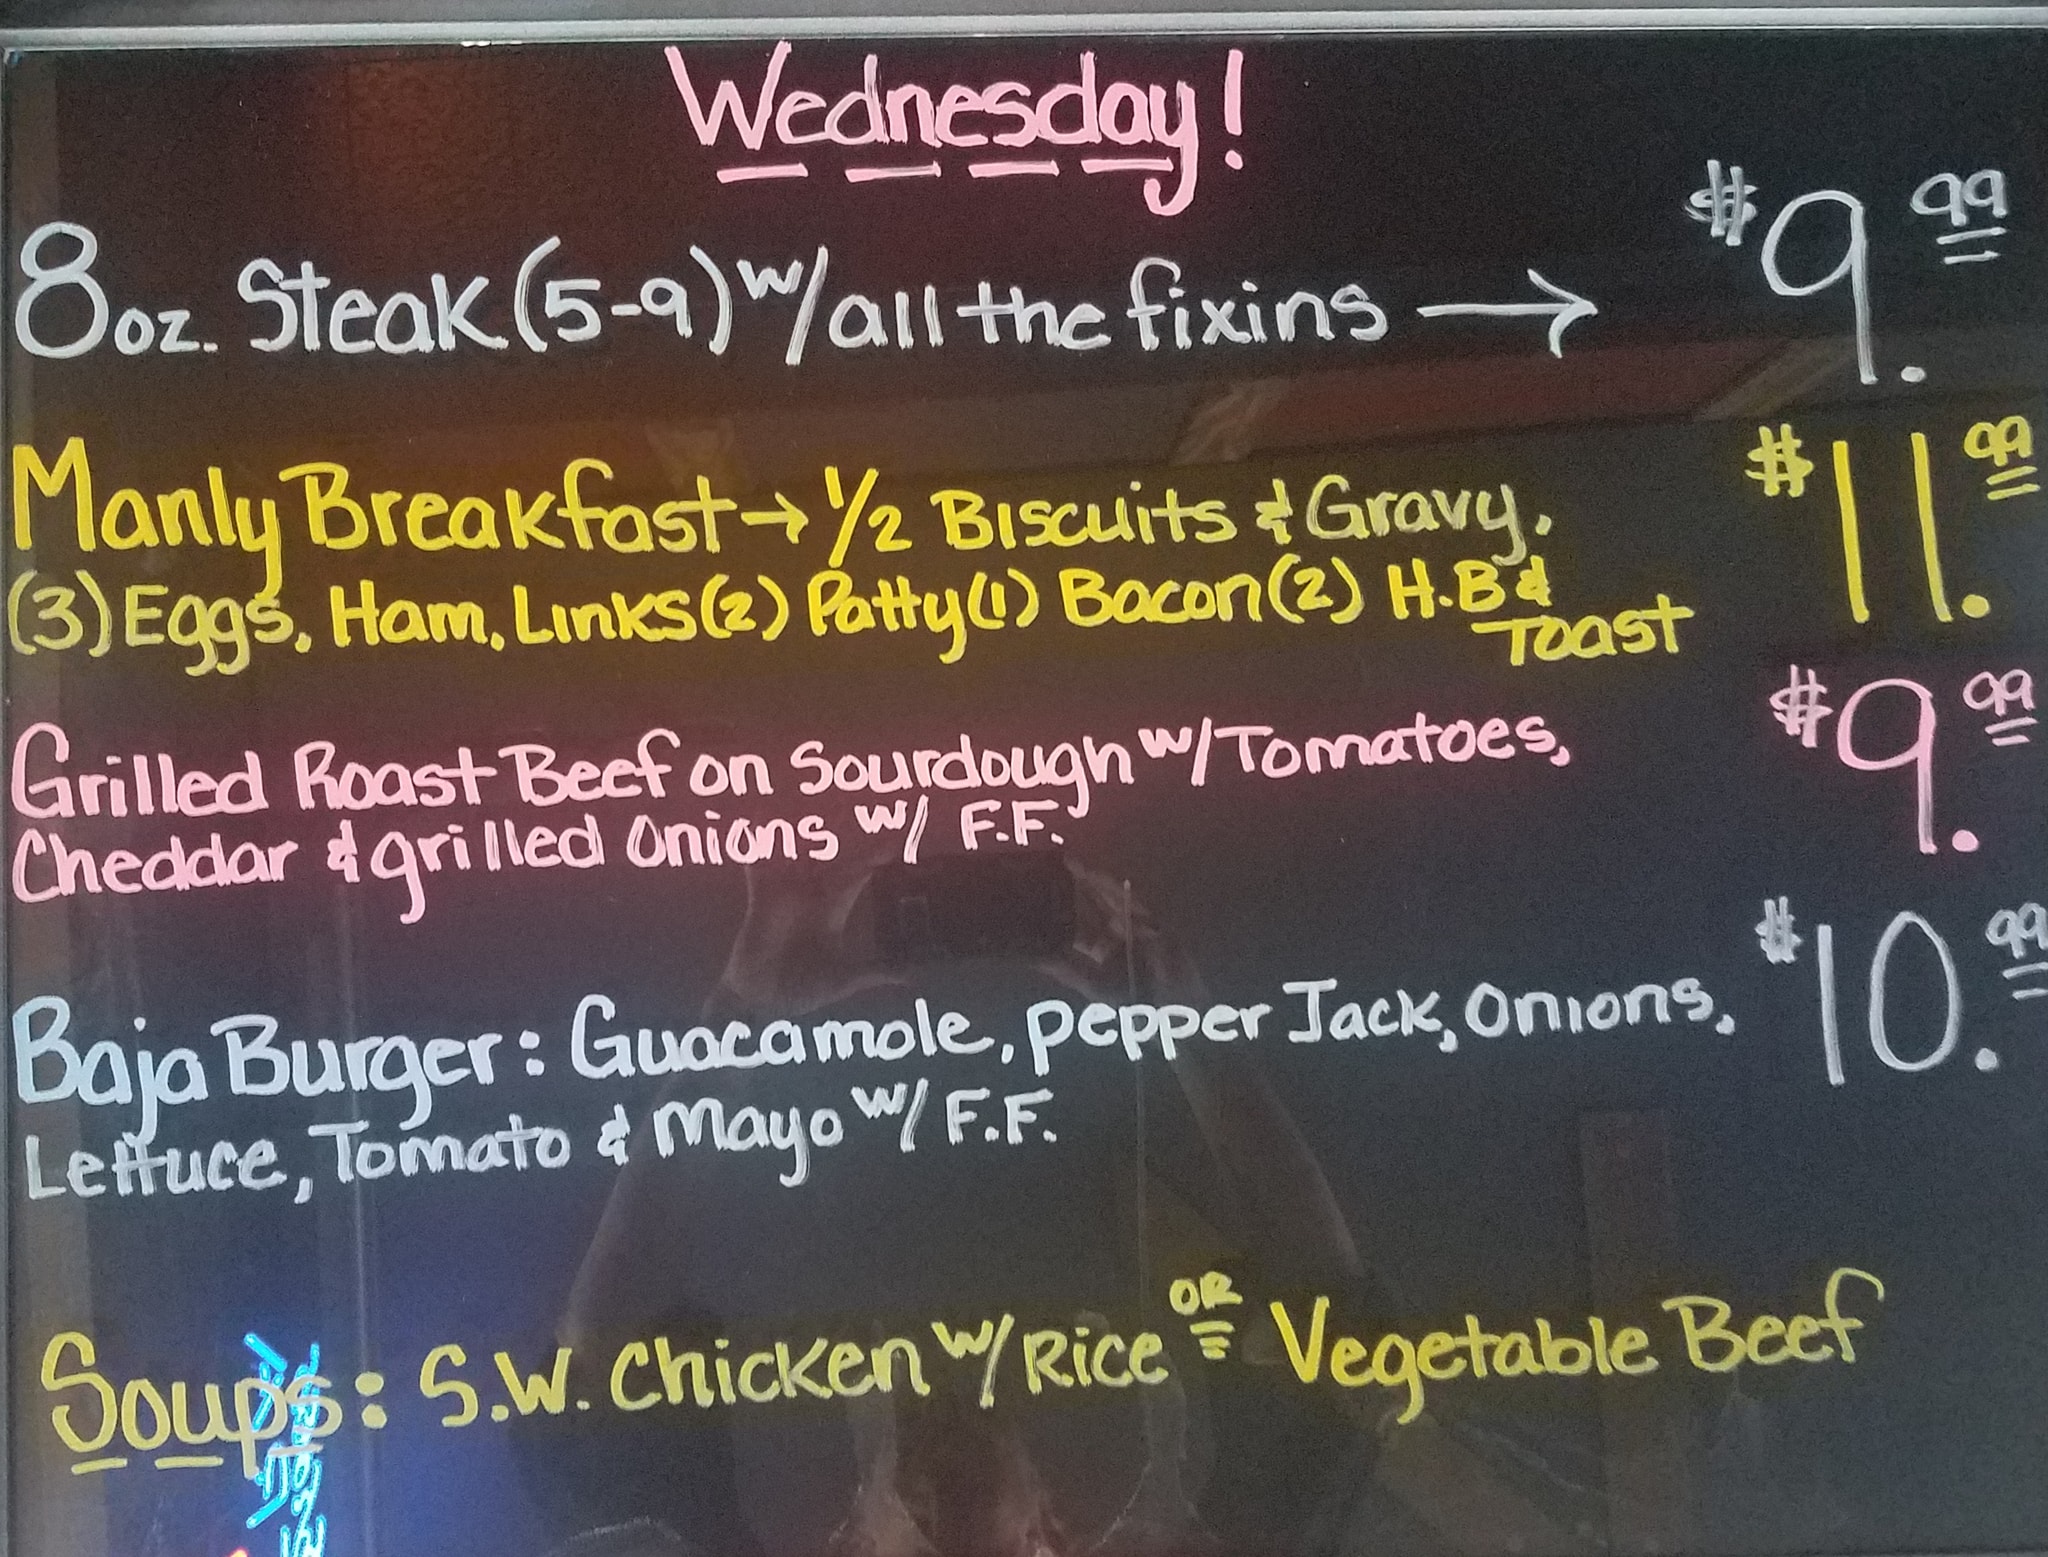 Wednesday!
8oz. Steak (5-9) w/ all the fixins → $9.99
Manly Breakfast → 1/2 Biscuits & Gravy, $11.99
(3) Eggs, Ham, Links (2) Patty (1) Bacon (2) H.B &
Toast
Grilled Roast Beef on Sourdough w/ Tomatoes, $9.99
Cheddar & grilled onions w/ F.F.
Baja Burger: Guacamole, pepper Jack, Onions, $10.99
Lettuce, Tomato & Mayo w/ F.F.
Soups: S.W. Chicken w/ Rice OR Vegetable Beef